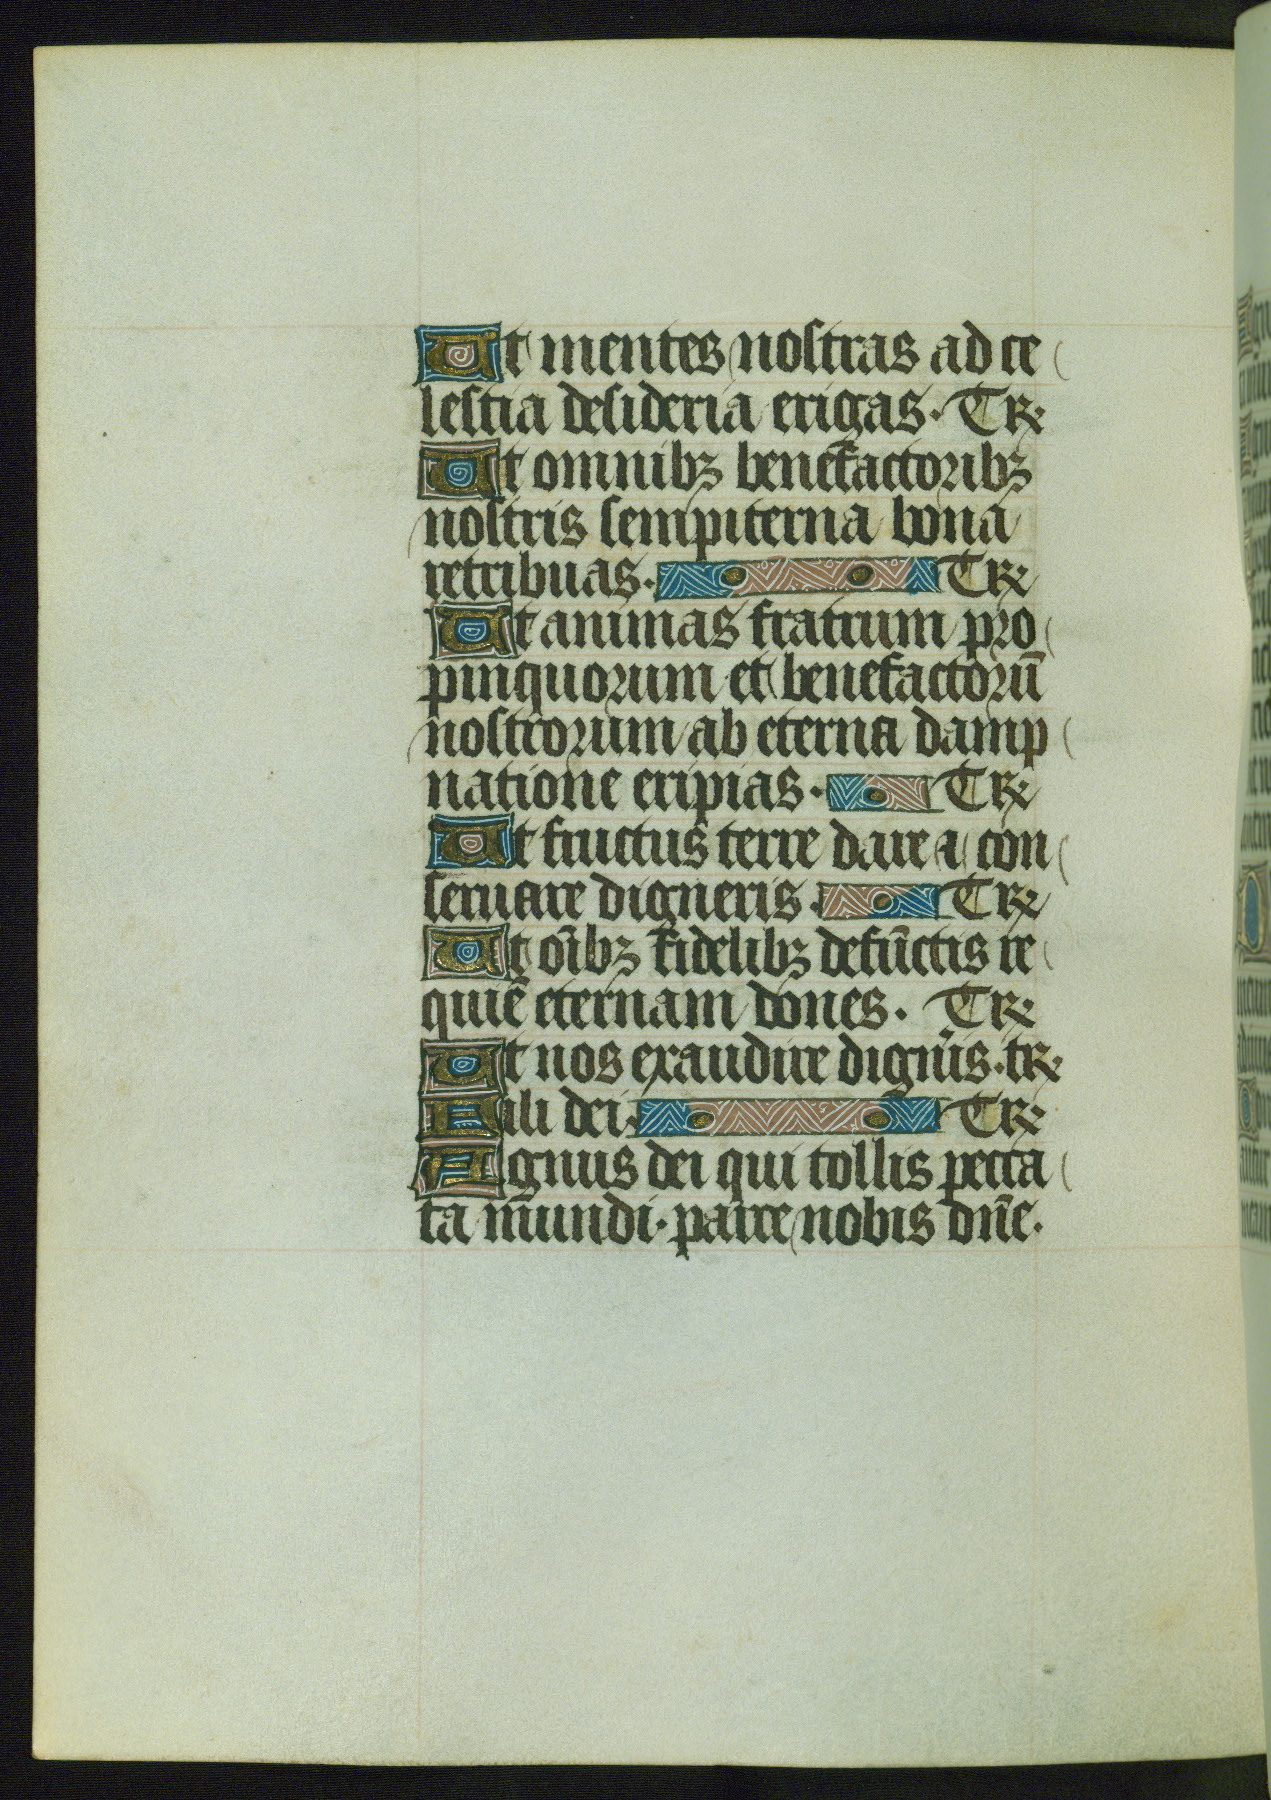 Ut mentes nostras ad ce
lestia desideria erigas. Tꝶ.
Ut omnibꝫ benefactoribꝫ
nostris sempiterna bona
retribuas. Tꝶ
Ut animas fratrum pro
pinquorum et benefactorū
nostrorum ab eterna damp
natione eripias. Tꝶ
Ut fructus terre dare ⁊ con
seruare digneris. Tꝶ
Ut oībꝫ fidelibꝫ defūctis re
quiē eternam dones. Tꝶ
Ut nos exaudire dignīs. tꝶ
Fili dei. Tꝶ
Agnus dei qui tollis pecca
ta mundi. parce nobis dn̄e.